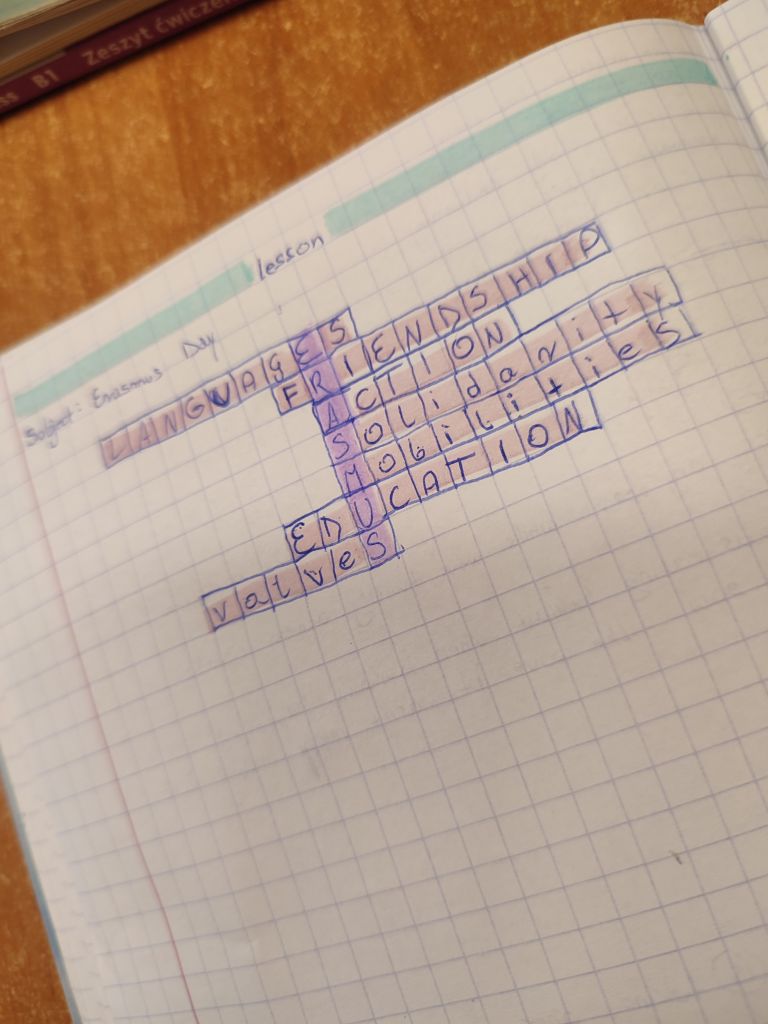 B1 Zeszyt ćwiczeń
lesson
Subject: Erasmus Day
LANGUAGES
FRIENDSHIP
ACTION
Solidarity
Mobilities
EDUCATION
valveS